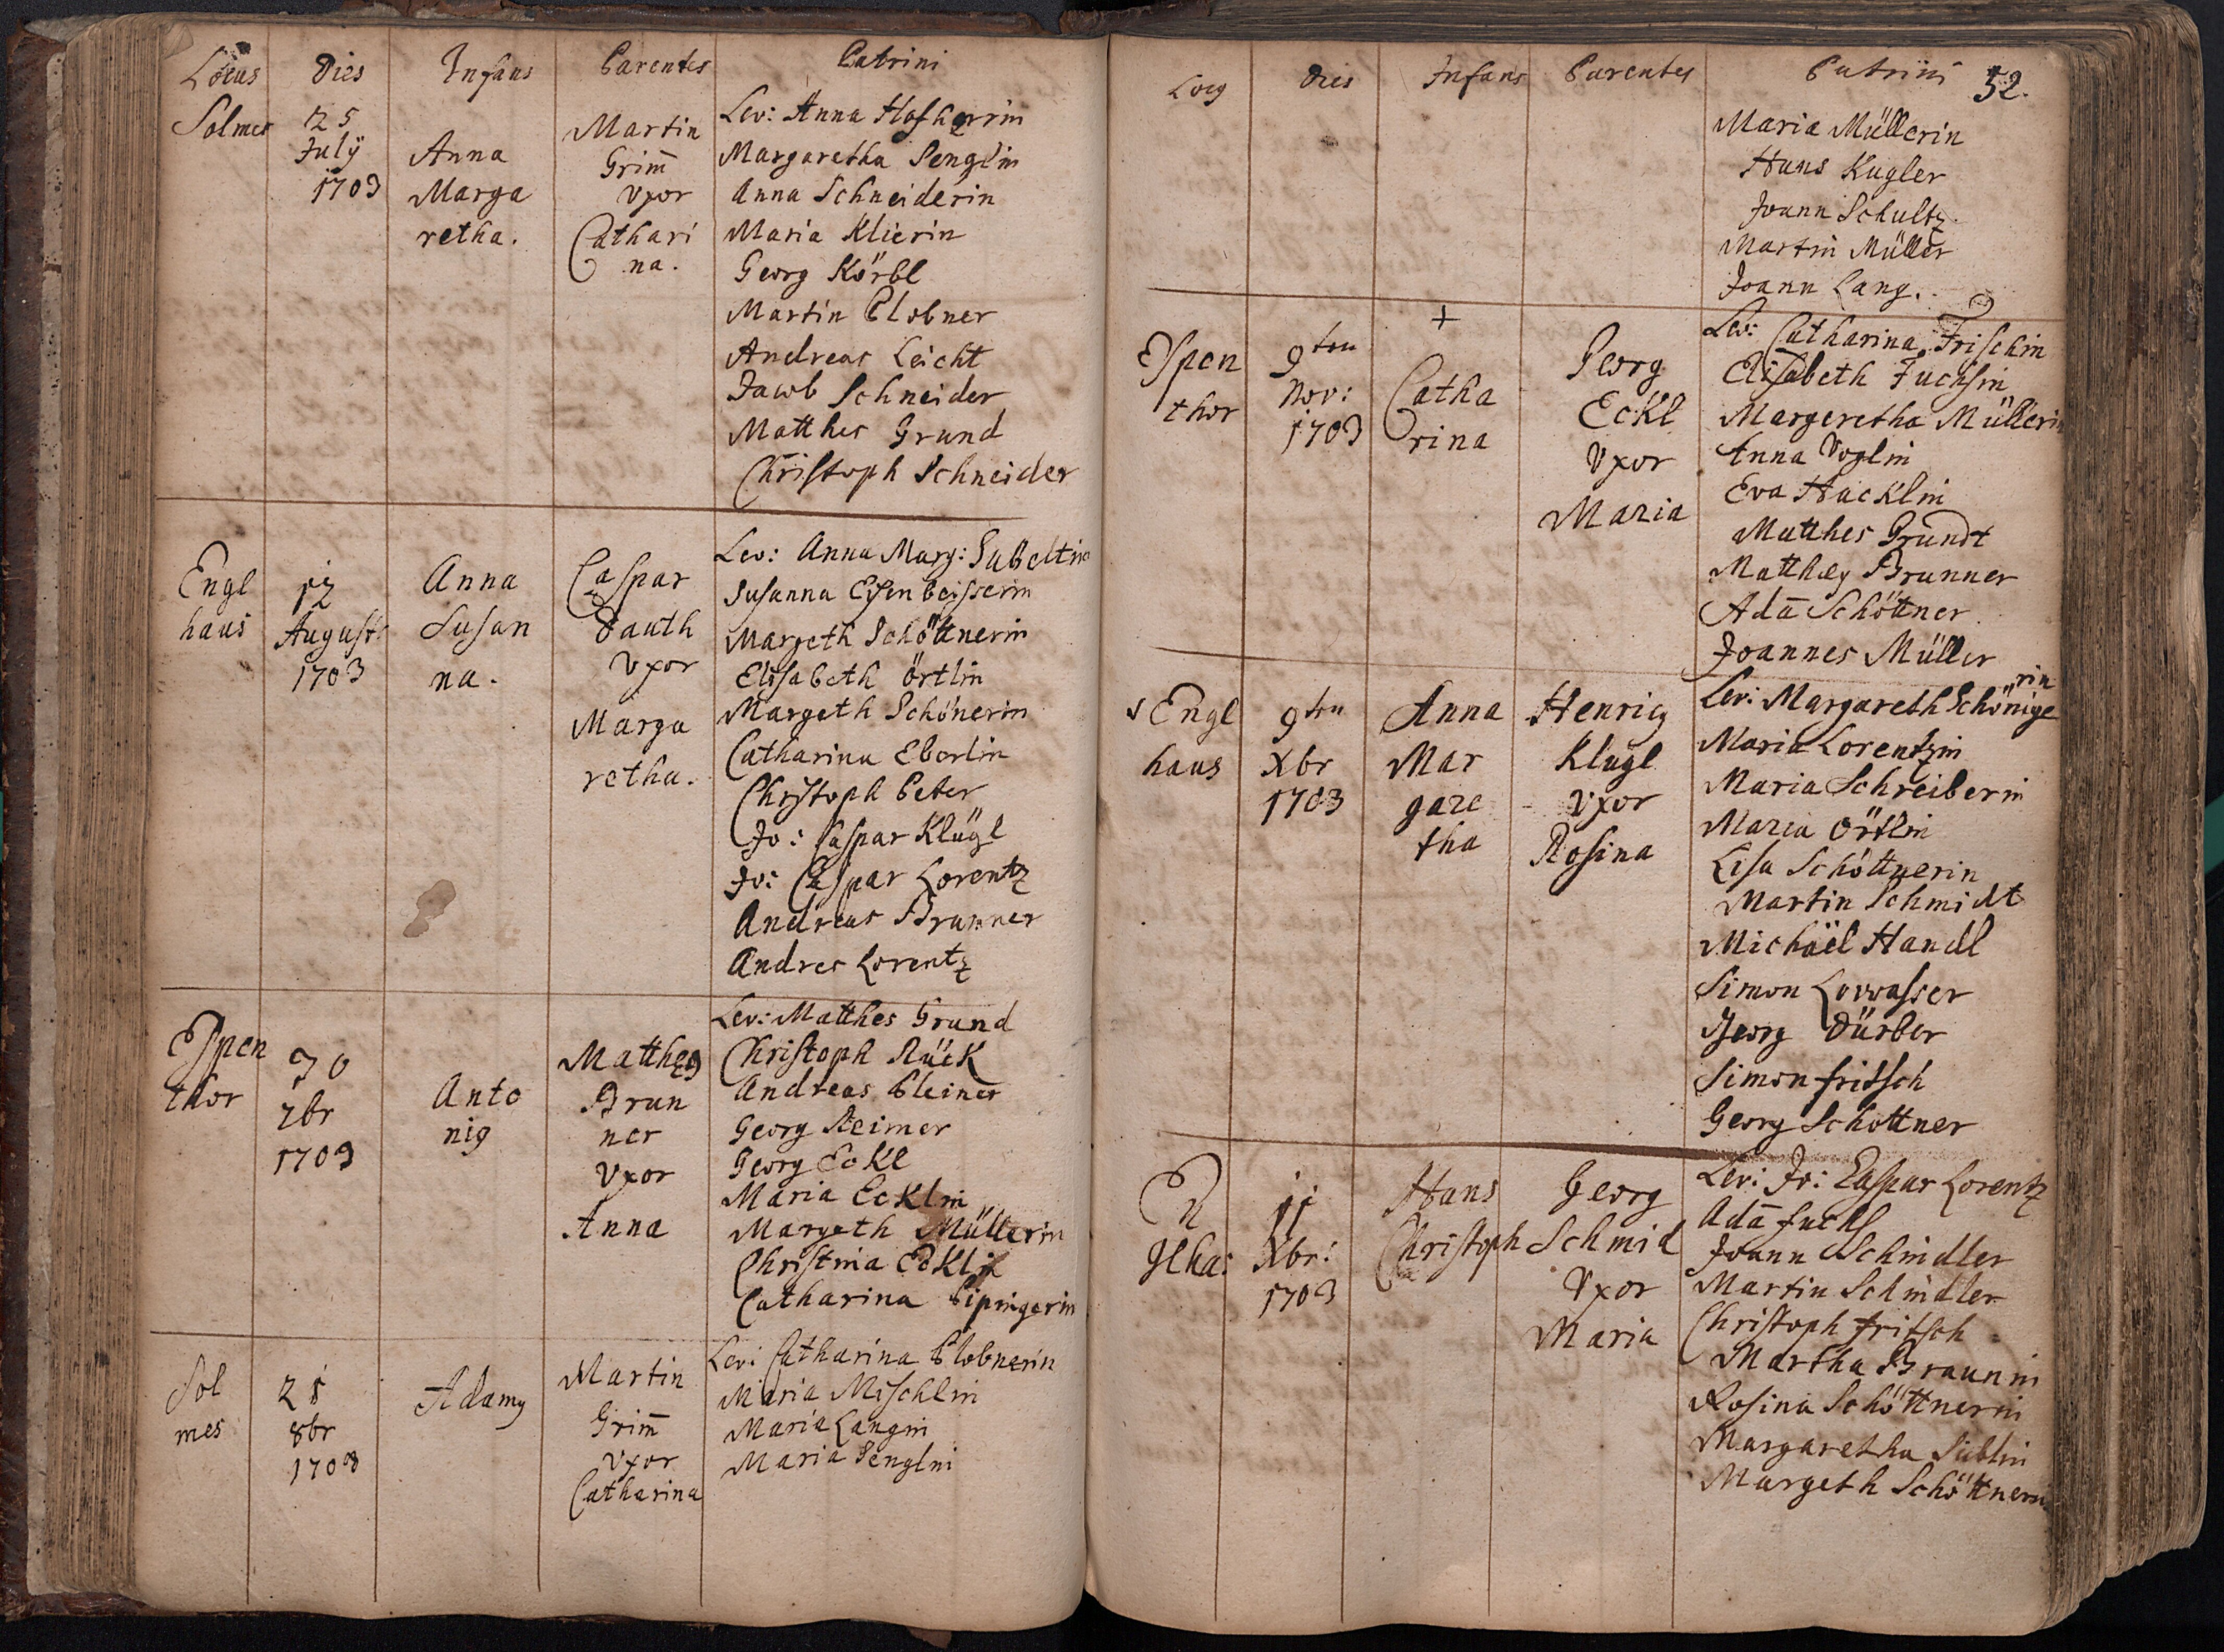 Locus Dies Infans Parentes Patrini
Solmes 25 July 1703 Anna Margaretha. Martin Grim̄ Vxor Catharina.
Lev: Anna Hofherrin
Margaretha Senglin
Anna Schneiderin
Maria Klierin
Georg Körbl
Martin Plobner
Andreas Leicht
Jacob Schneider
Matthes Grund
Christoph Schneider
Engl
haus
12
August:
1703
Anna
Susan
na.
Caspar
Pauth
Vxor
Marga
retha.
Lev: Anna Marg:
Susanna Eisenbeisserin
Margeth Schöttnerin
Elisabeth Örtlin
Margeth Schönerin
Catharina Eberlin
Christoph Peter
Jo: Caspar Klügl
Jo: Caspar Lorentz
Andreas Brunner
Andres Lorentz
Espen
thor
30
7br
1703
Anto
nig
Matthes
Brun
ner
Vxor
Anna
Lev: Matthes Grund
Christoph Rück
Andreas Pleiner
Georg Reimer
Georg Eckl
Maria Ecklin
Margeth Müllerin
Christina Ecklin
Catharina Pipingerin
Sol
mes
8br
1703
Adamg
Martin
Grim̄
Vxor
Catharina
Lev: Catharina Plobnerin
Maria Mischlin
Maria Langin
Maria Senglin
Locg Dies Infans Parentes Patrini 52.
Maria Müllerin
Hans Kugler
Joann Schultz.
Martin Müller
Joann Lang.
Espen
thor
9ten
Nov:
1703
+
Catha
rina
Georg
Eckl
Vxor
Maria
Lev: Catharina Frischin
Elisabeth Fuchsin
Margeretha Müllerin
Anna Voglin
Eva Hacklin
Matthes Grundt
Matthæg Brunner
Adā Schöttner.
Joannes Müller
Engl
haus
9ten
Xbr
1703
Anna
Mar
gare
tha
Henrig
Klugl
Vxor
Rosina
Lev: Margareth Schönigerin
Maria Lorentzin
Maria Schreiberin
Maria Örtlin
Lisa Schöttnerin
Martin Schmidt
Michäel Handl
Simon Lovvasser
Georg Dürber
Simon fritsch
Georg Schottner
E
n
glha:
11
Xbr:
1703
Hans
Christoph
Georg
Schmid
Vxor
Maria
Lev: Jo: Caspar Lorentz
Adā fuchs
Joann Schindler
Martin Schindler
Christoph fritsch
Martha Braunin
Rosina Schöttnerin
Margaretha Süblin
Margeth Schöttnerin